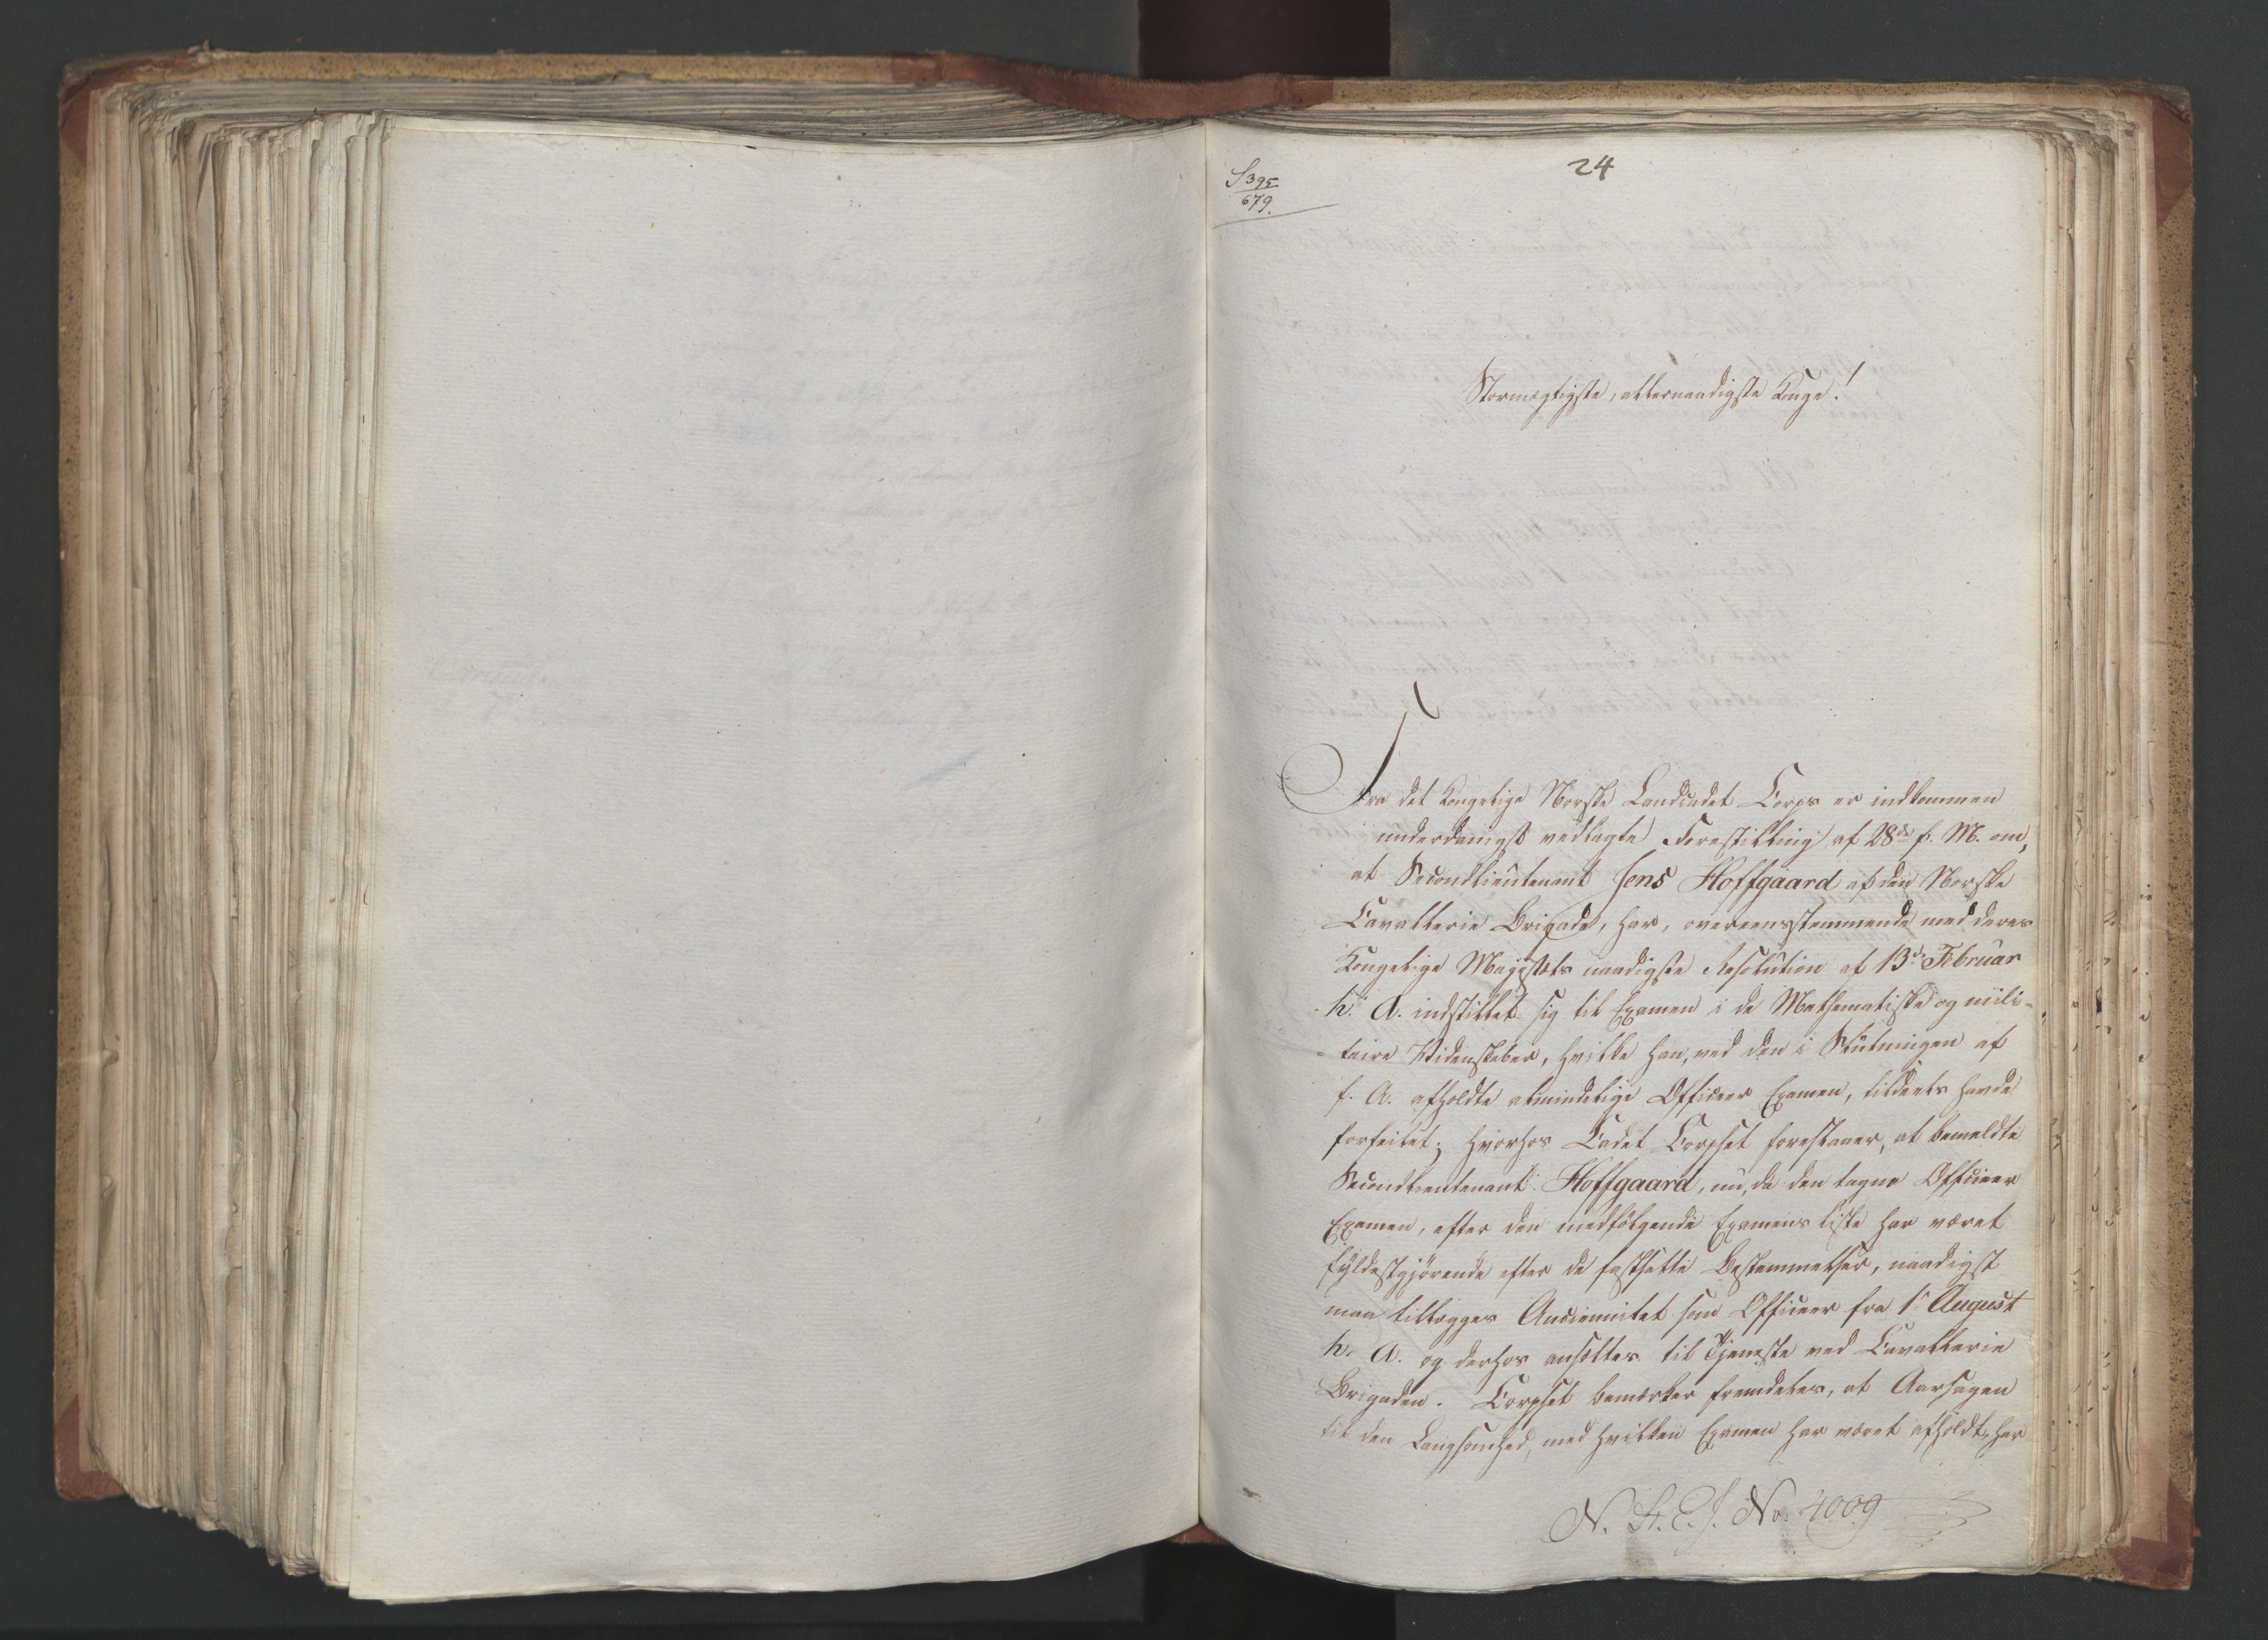 S 395
679.
24
Stormægtigste, allernaadigste Konge!
Fra det Kongelige Norske Landcadet Corps er indkommen
underdanigst vedlagte Forestilling af 28de f. M. om,
at Secondlieutenant Jens Hoffgaard af den Norske
Cavallerie Brigade, har, overeensstemmende med Deres
Kongelige Majestæts naadigste Resolution af 13de Februar
h. A. indstillet sig til Examen i de Mathematiske og mili-
taire Videnskaber, hvilke han, ved den i Slutningen af
f. A. afholdte almindelige Officeer Examen, tildeels havde
forfeilet; hvorhos Cadet Corpset forestaaer, at bemeldte
Secondlieutenant Hoffgaard, nu, da den tagne Officeer
Examen, efter den medfölgende Examens Liste har været
fyldestgjörende efter de fastsatte Bestemmelser, naadigst
maa tillægges Anciennitet som Officeer fra 1ste August
h. A. og derhos ansættes til Tjeneste ved Cavallerie
Brigaden. Corpset bemærker fremdeles, at Aarsagen
til den Langsomhed, med hvilken Examen har været afholdt, har
N. St. E. J. No. 4009